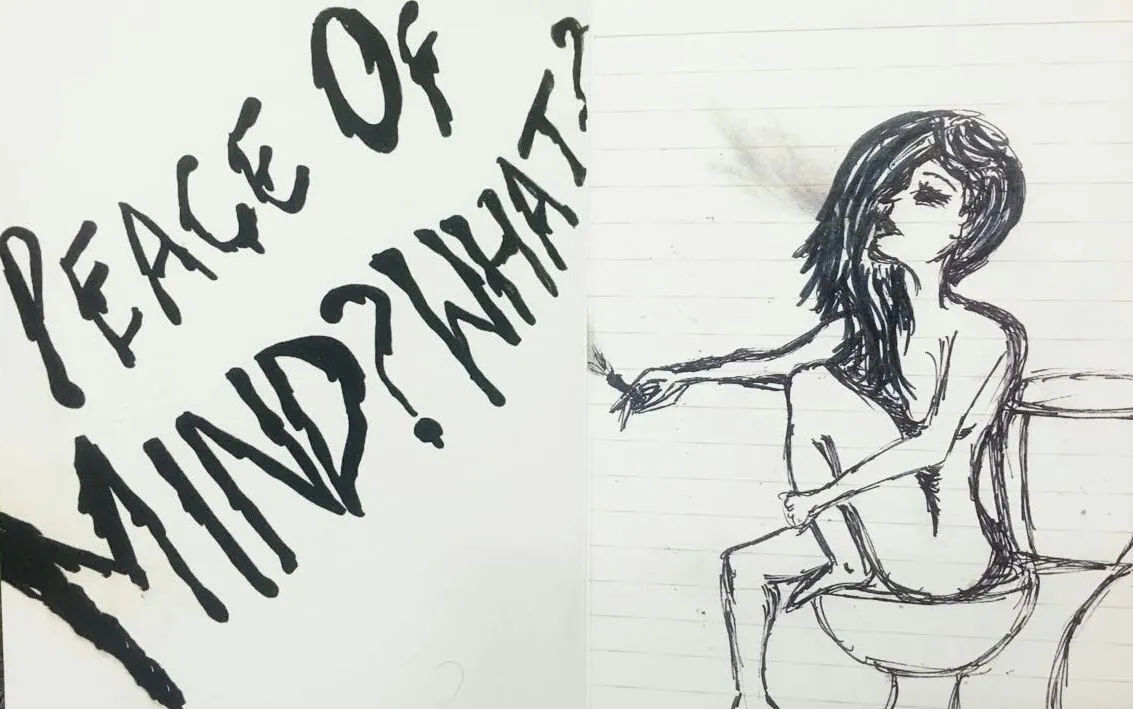 PEACE OF
MIND? WHAT?